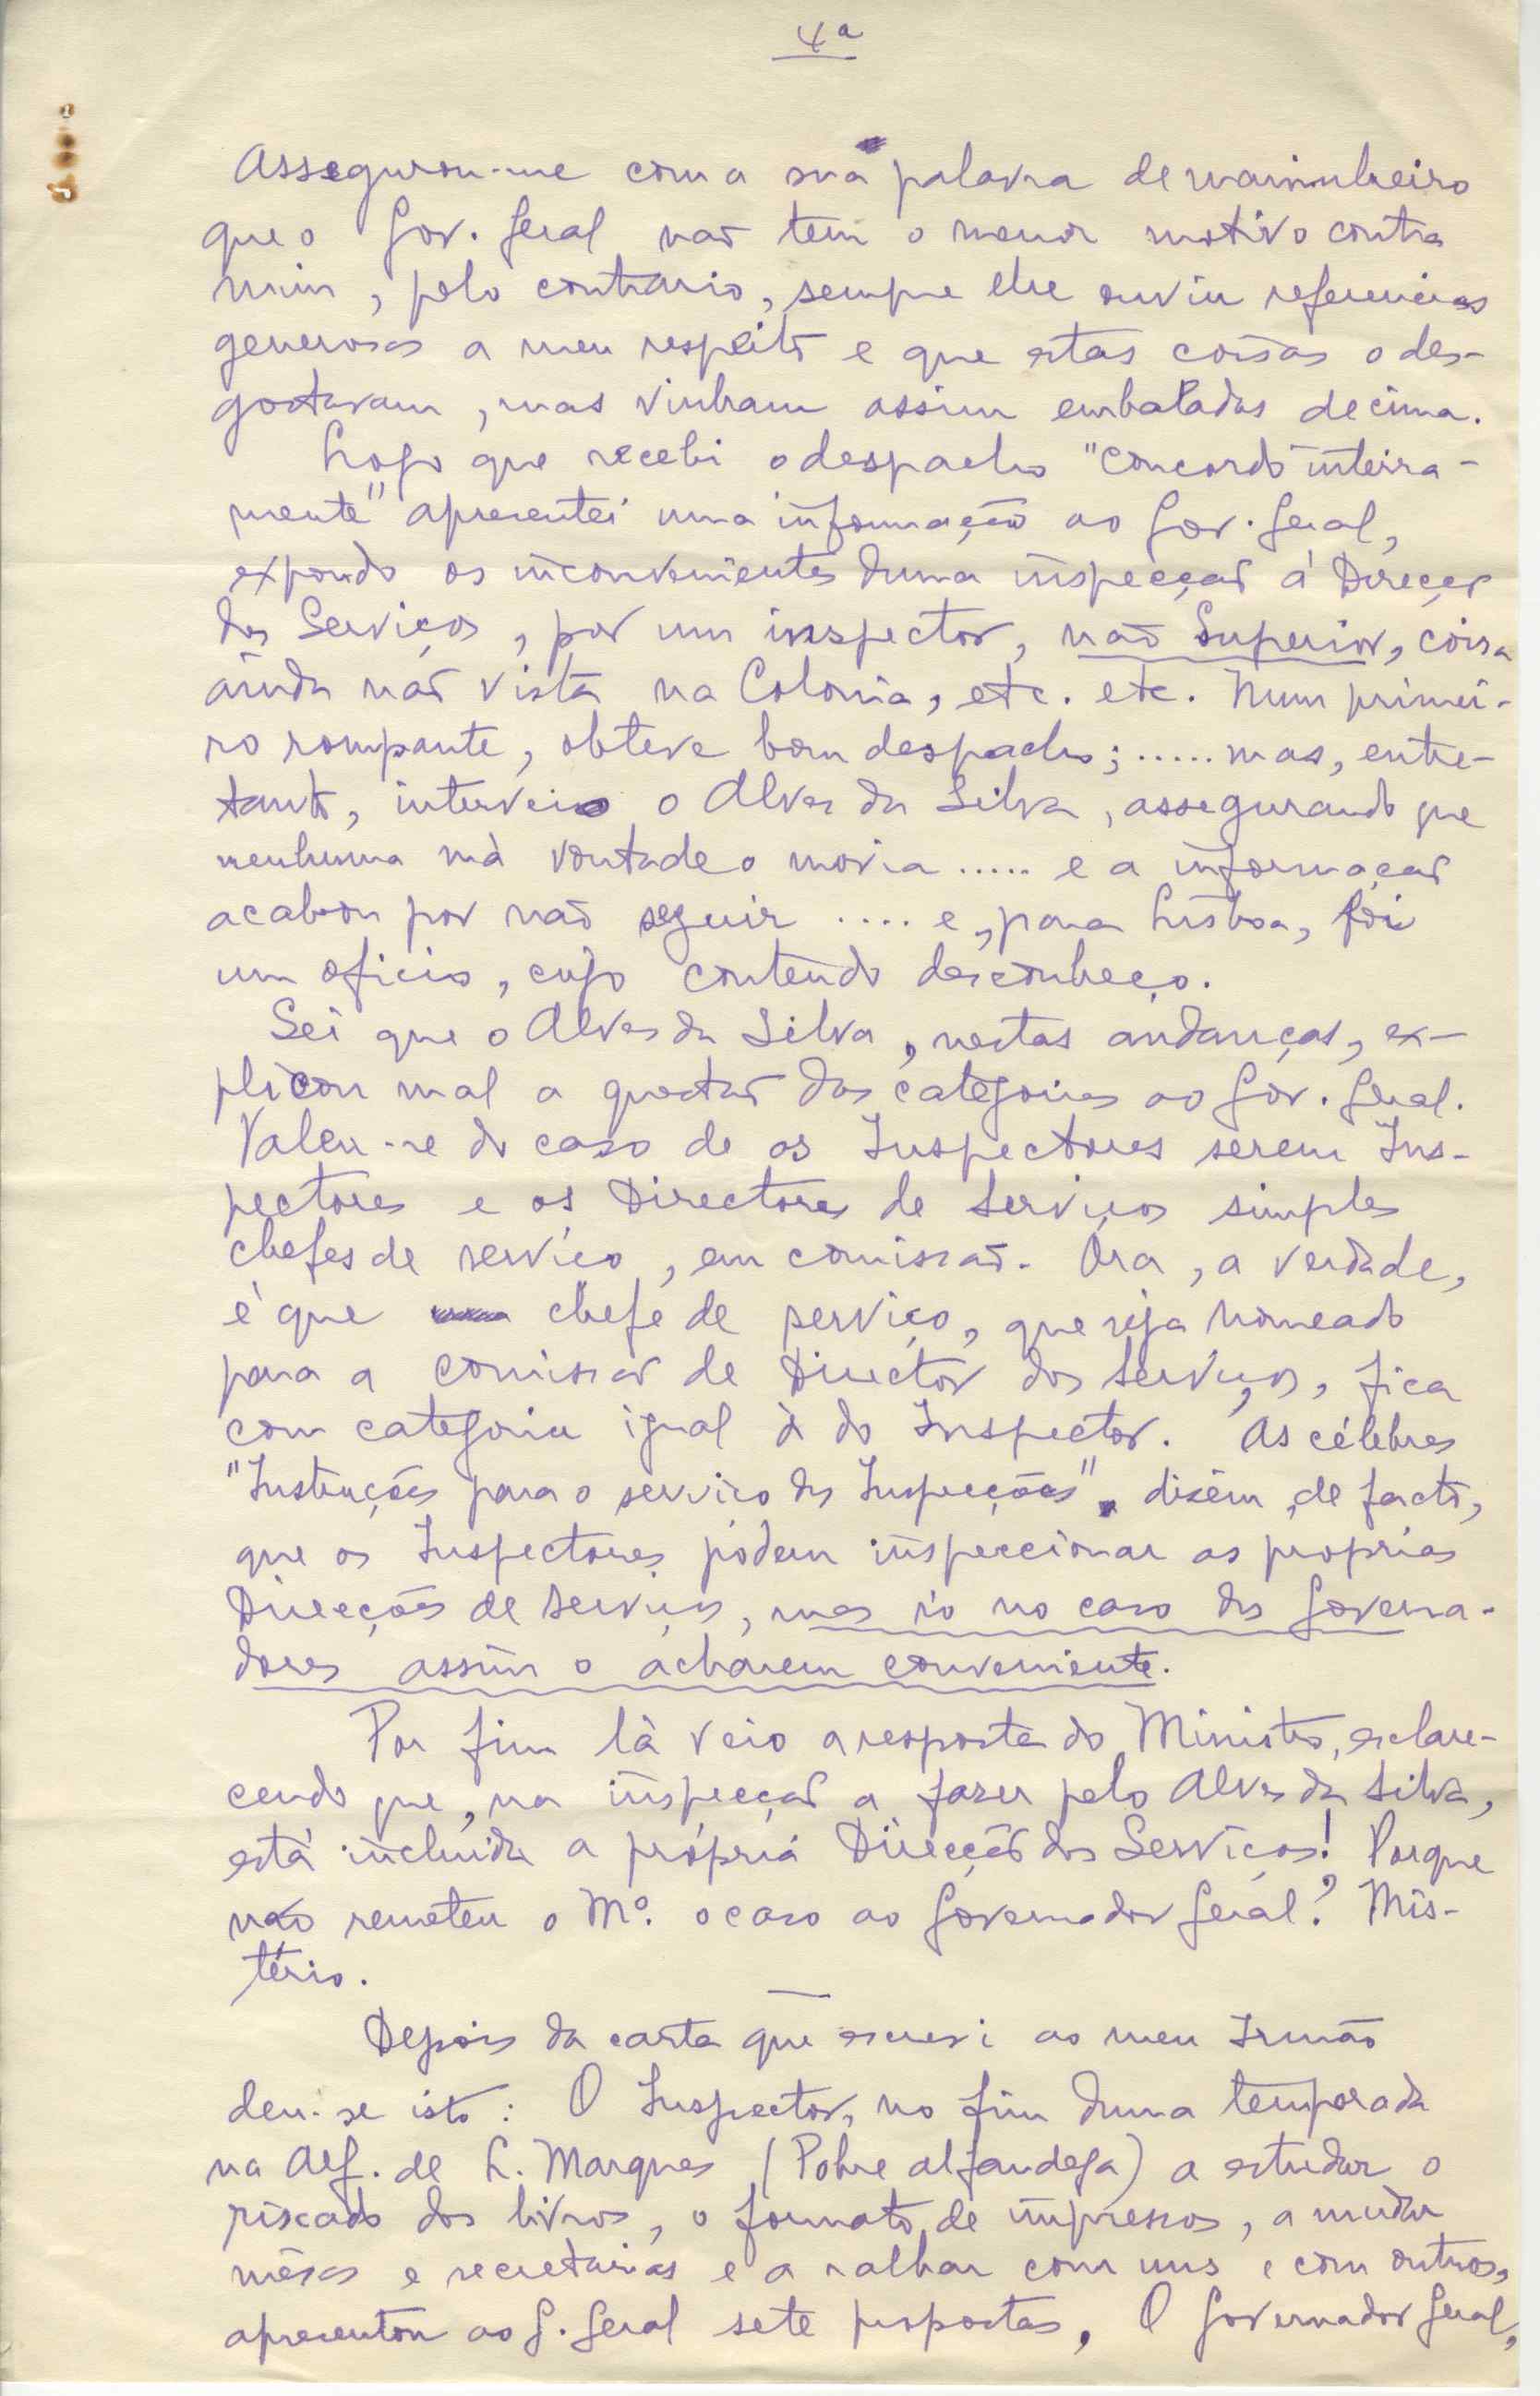 4ª
Assegurou-me com a sua palavra de marinheiro
que o Gov. Geral não tem o menor motivo contra
mim, pelo contrario, sempre lhe ouviu referencias
generosas a meu respeito e que estas coisas o des-
gostavam, mas vinham assim embaladas de cima.
Logo que recebi o despacho "concordo inteira-
mente" apresentei uma informação ao Gov. Geral,
expondo os inconvenientes duma inspecção á Direcção
dos Serviços, por um inspector, não Superior, coisa
ainda não vista na Colonia, etc. etc. Num primei-
ro rompante, obteve bom despacho; ..... mas, entre-
tanto, interveio o Alves da Silva, assegurando que
nenhuma má vontade o movia ..... e a informação
acabou por não seguir .... e, para Lisboa, foi
um oficio, cujo conteudo desconheço.
Sei que o Alves da Silva, nestas andanças, ex-
plicou mal a questão das categorias ao Gov. Geral.
Valeu-se do caso de os Inspectores serem Ins-
pectores e os Directores de Serviços simples
chefes de serviço, em comissão. Ora, a verdade,
é que chefe de serviço, que seja nomeado
para a comissão de Director dos Serviços, fica
com categoria igual à do Inspector. As célebres
"Instruções para o serviço das Inspecções", dizem, de facto,
que os Inspectores pódem inspeccionar as proprias
Direcções de Serviços, mas só no caso dos Governa-
dores assim o acharem conveniente.
Por fim lá veio a resposta do Ministro, esclare-
cendo que, na inspecção a fazer pelo Alves da Silva,
está incluida a própria Direcção dos Serviços! Porque
não remeteu o Mº. o caso ao Governador Geral? Mis-
tério.
Depois da carta que escrevi ao meu Irmão
deu-se isto: O Inspector, no fim duma temporada
na Alf. de L. Marques (Pobre alfandega) a estudar o
riscado dos livros, o formato de impressos, a mudar
mêsas e secretarias e a ralhar com uns e com outros,
apresentou ao G. Geral sete propostas. O Governador Geral,